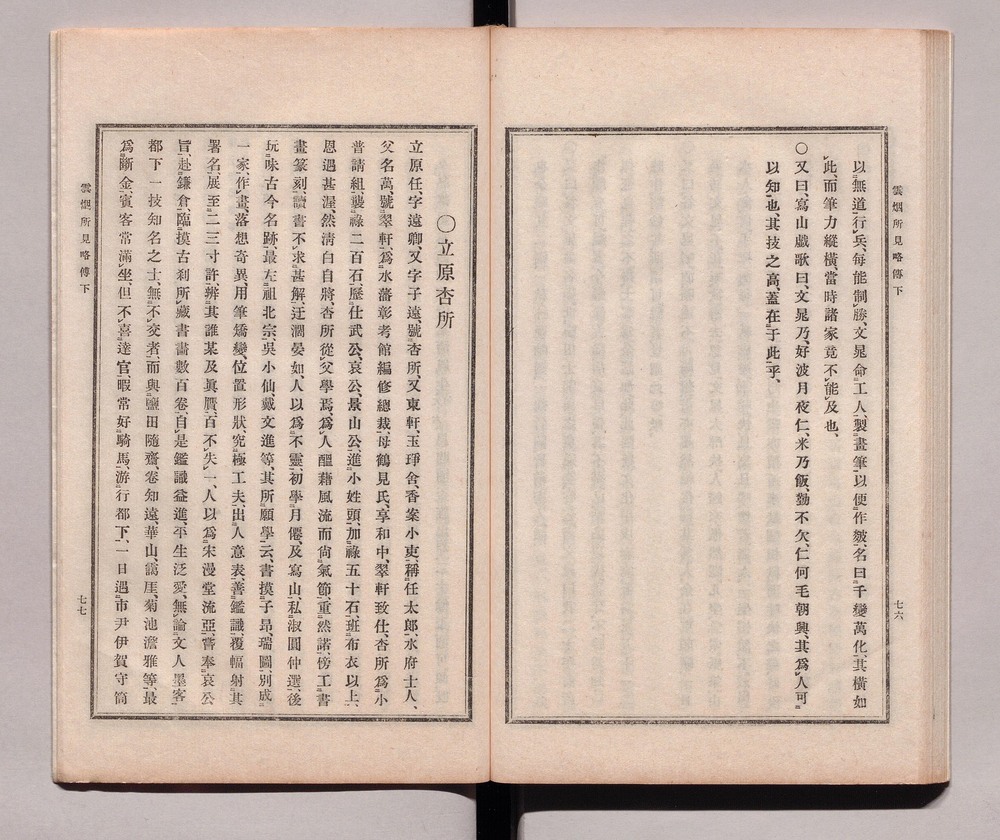 雲烟所見略傳下
七六
以無道行兵、每能制勝、文晁命工人、製畫筆以便作皴、名曰千變萬化、其橫如
此、而筆力縱橫、當時諸家竟不能及也、
〇又曰、寫山戲歌曰、文晁乃、好波月夜仁、米乃飯、勤不欠、仁何毛朝興、其爲人可
以知也、其技之高、蓋在于此乎、
〇立原杏所
立原任、字遠卿、又字子遠、號杏所、又東軒、玉琤舍、香案小吏、稱任太郎、水府士人、
父名萬、號翠軒、爲水藩彰考館編修總裁、母鶴見氏、享和中、翠軒致仕、杏所爲小
普請組、襲祿二百石、歷仕武公、哀公、景山公、進小姓頭、加祿五十石、班布衣以上、
恩遇甚渥、然淸白自將、杏所從父學焉、爲人醞藉風流而尙氣節、重然諾、傍工書
畫篆刻、讀書不求甚解、迂濶晏如、人以爲不靈、初學月僊、及寫山、私淑圓仲選、後
玩味古今名跡、最左祖北宗、吳小仙、戴文進等、其所願學云、書摸子昂、瑞圖、別成
一家、作畫、落想奇異、用筆矯變、位置形狀、究極工夫、出人意表、善鑑識、覆幅射其
署名、展至二三寸許、辨其誰某及眞贋、百不失一、人以爲宋漫堂流亞、嘗奉哀公
旨、赴鎌倉、臨摸古刹所藏書畫數百卷、自是鑑識益進、平生泛愛、無論文人墨客、
都下一技知名之士、無不交者、而與鹽田隨齋、卷知遠、華山、靄厓、菊池澹雅等、最
爲斷金、賓客常滿坐、但不喜達官、暇常好騎馬、游行都下、一日遇市尹伊賀守筒
雲烟所見略傳下
七七